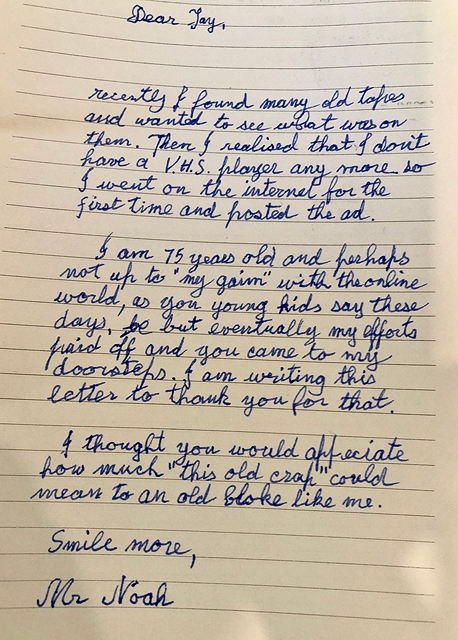 Dear Jay,
recently I found many old tapes
and wanted to see what was on
them. Then I realised that I don't
have a V.H.S. player any more. so
I went on the internet for the
first time and posted the ad.
I am 75 years old and perhaps
not up to "my gaim" with the online
world, as you young kids say these
days, but eventually my efforts
paid off and you came to my
doorsteps. I am writing this
letter to thank you for that.
I thought you would appreciate
how much "this old crap" could
mean to an old bloke like me.
Smile more,
Mr Noah